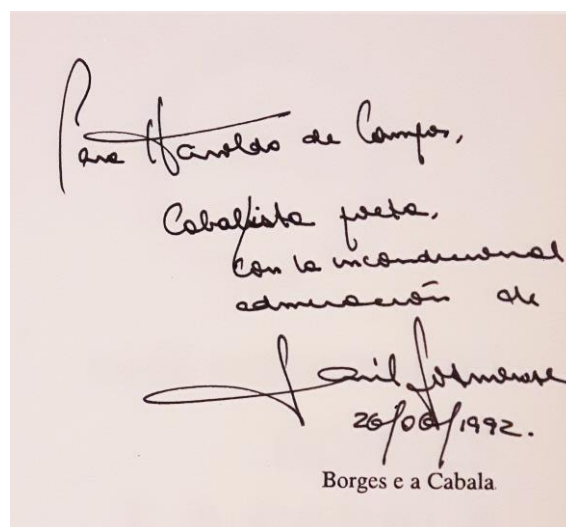 Para Haroldo de Campos,
Cabalista poeta,
con la incondicional
admiración de
Saúl Sosnowski
26/06/1992.
Borges e a Cabala